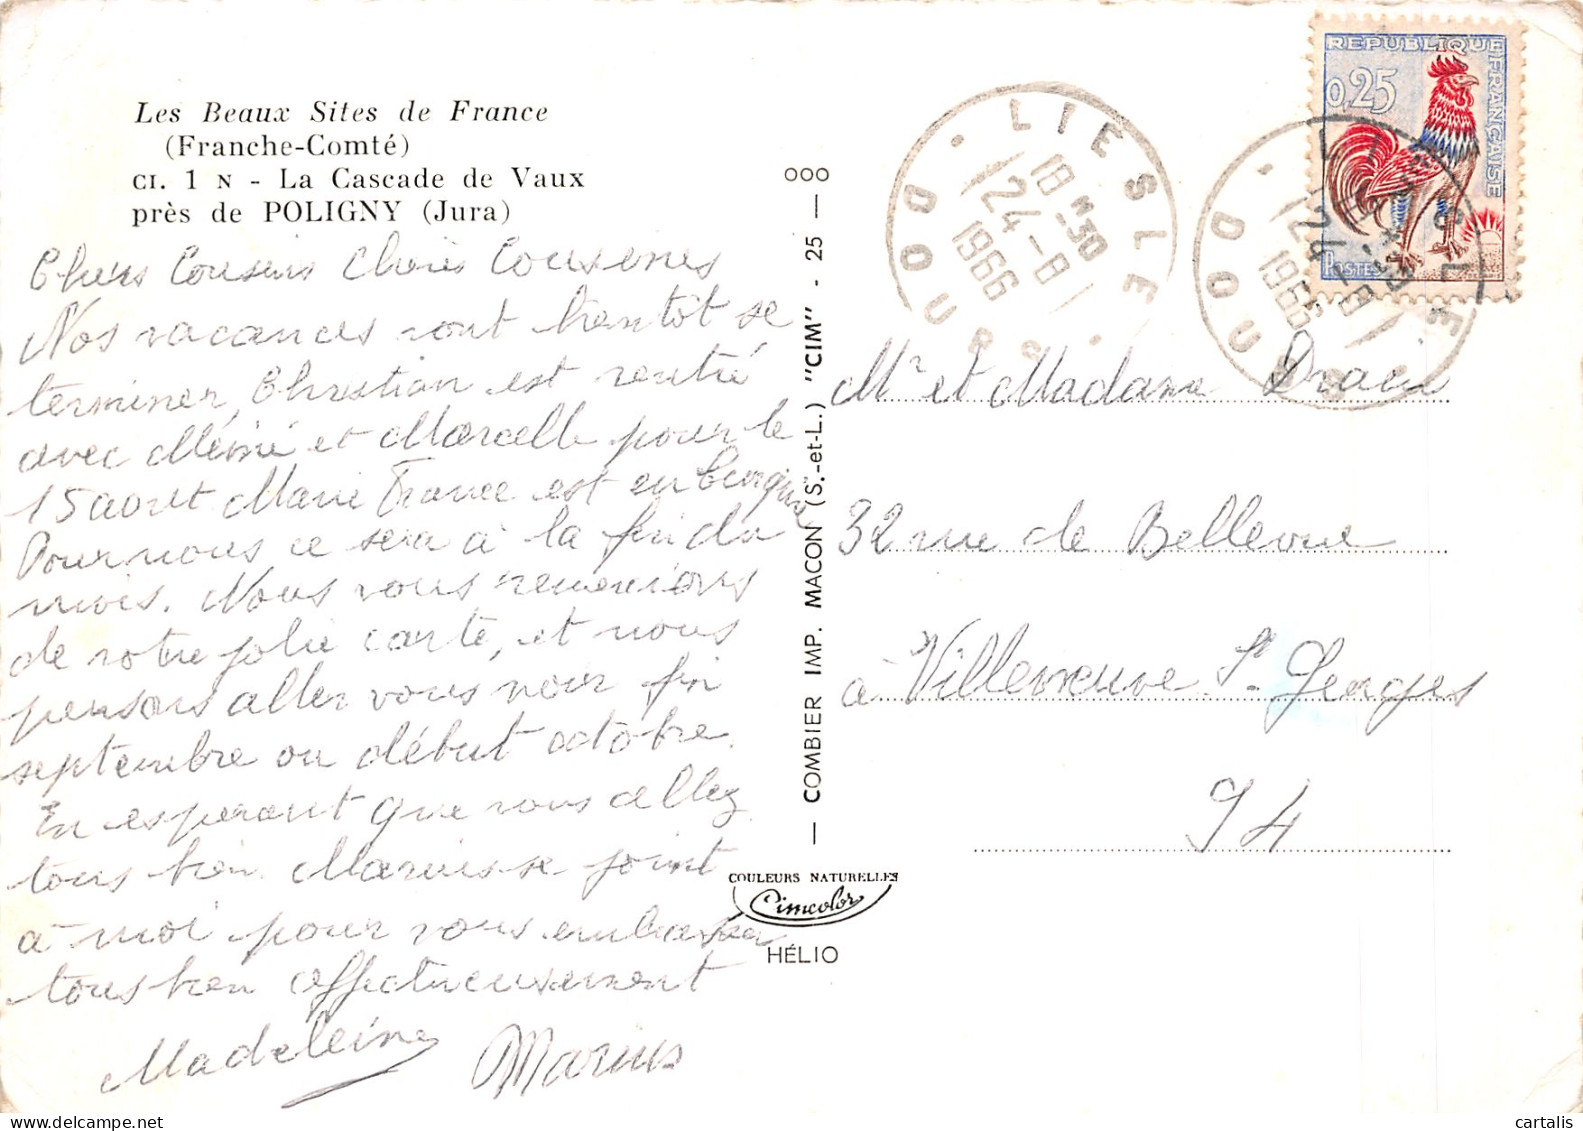 Les Beaux Sites de France
(Franche-Comté)
CI. 1 N - La Cascade de Vaux
près de POLIGNY (Jura)
Chers Cousins Chères Cousines
Nos vacances vont bientôt se
terminer, Christian est rentré
avec Mémé et Marcelle pour le
15 aout Marie France est en
Pour nous ce sera à la fin du
mois. Nous vous remercions
de votre jolie carte, et nous
pensons aller vous voir fin
septembre ou début octobre.
En esperant que vous allez
tous bien Marius se joint
à moi pour vous embrasser
tous bien affectueusement
Madeleine Marius
COMBIER IMP. MACON (S.-et-L.) "CIM" - 25
000
COULEURS NATURELLES
Cimcolor
HÉLIO
LIESLE
18 H 30
24-8
1966
DOUBS
LIESLE
24-8
1966
DOUBS
REPUBLIQUE FRANÇAISE
0,25
POSTES
Mr et Madame
32 rue de Bellevue
à Villeneuve St Georges
94
cartalis